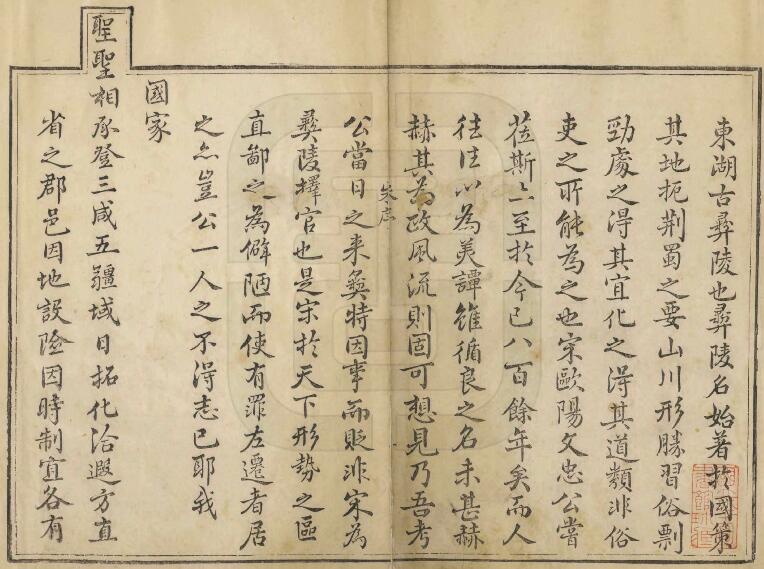 東湖古彞陵也彞陵名始著於國策
其地扼荆蜀之要山川形勝習俗剽
勁處之得其宜化之得其道類非俗
吏之所能為之也宋歐陽文忠公嘗
莅斯土至於今已八百餘年矣而人
往往以為美譚雖循良之名未甚赫
赫其為政風流則固可想見乃吾考
朱序
公當日之来彞特因事而貶非宋為
彞陵擇官也是宋於天下形勢之區
直鄙之為僻陋而使有罪左遷者居
之亦豈公一人之不得志已耶我
國家
聖聖相承登三咸五疆域日拓化洽遐方直
省之郡邑因地設險因時制宜各有